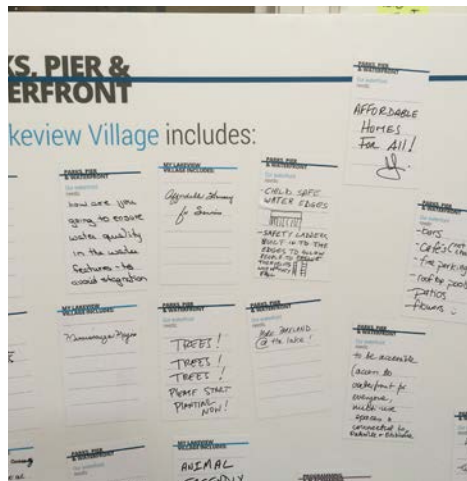 KS, PIER &
ERFRONT
keview Village includes:
PARKS, PIER
& WATERFRONT
Our waterfront
needs:
AFFORDABLE
HOMES
FOR ALL!
PARKS, PIER
& WATERFRONT
Our waterfront
needs:
how are you
going to ensure
water quality
in the water
features - to
avoid stagnation
MY LAKEVIEW
VILLAGE INCLUDES:
Affordable
for Seniors
PARKS, PIER
& WATERFRONT
Our waterfront
needs:
- CHILD SAFE
WATER EDGES
- SAFETY LADDERS
BUILT IN TO THE
EDGES TO ALLOW
PEOPLE TO
PARKS, PIER
& WATERFRONT
Our waterfront
needs:
- Bars
- Cafés
- free parking
- rooftop pools
- Patios
- flowers
MY LAKEVIEW
VILLAGE INCLUDES:
PARKS, PIER
& WATERFRONT
Our waterfront
needs:
TREES!
TREES!
TREES!
PLEASE START
PLANTING
NOW!
PARKS, PIER
& WATERFRONT
Our waterfront
needs:
PARKLAND
@ the lake!
PARKS, PIER
& WATERFRONT
Our waterfront
needs:
to be accessible
(access to
waterfront for
everyone,
multi-use
spaces &
connected to
PARKS, PIER
& WATERFRONT
MY LAKEVIEW
VILLAGE INCLUDES:
ANIMAL
FRIENDLY